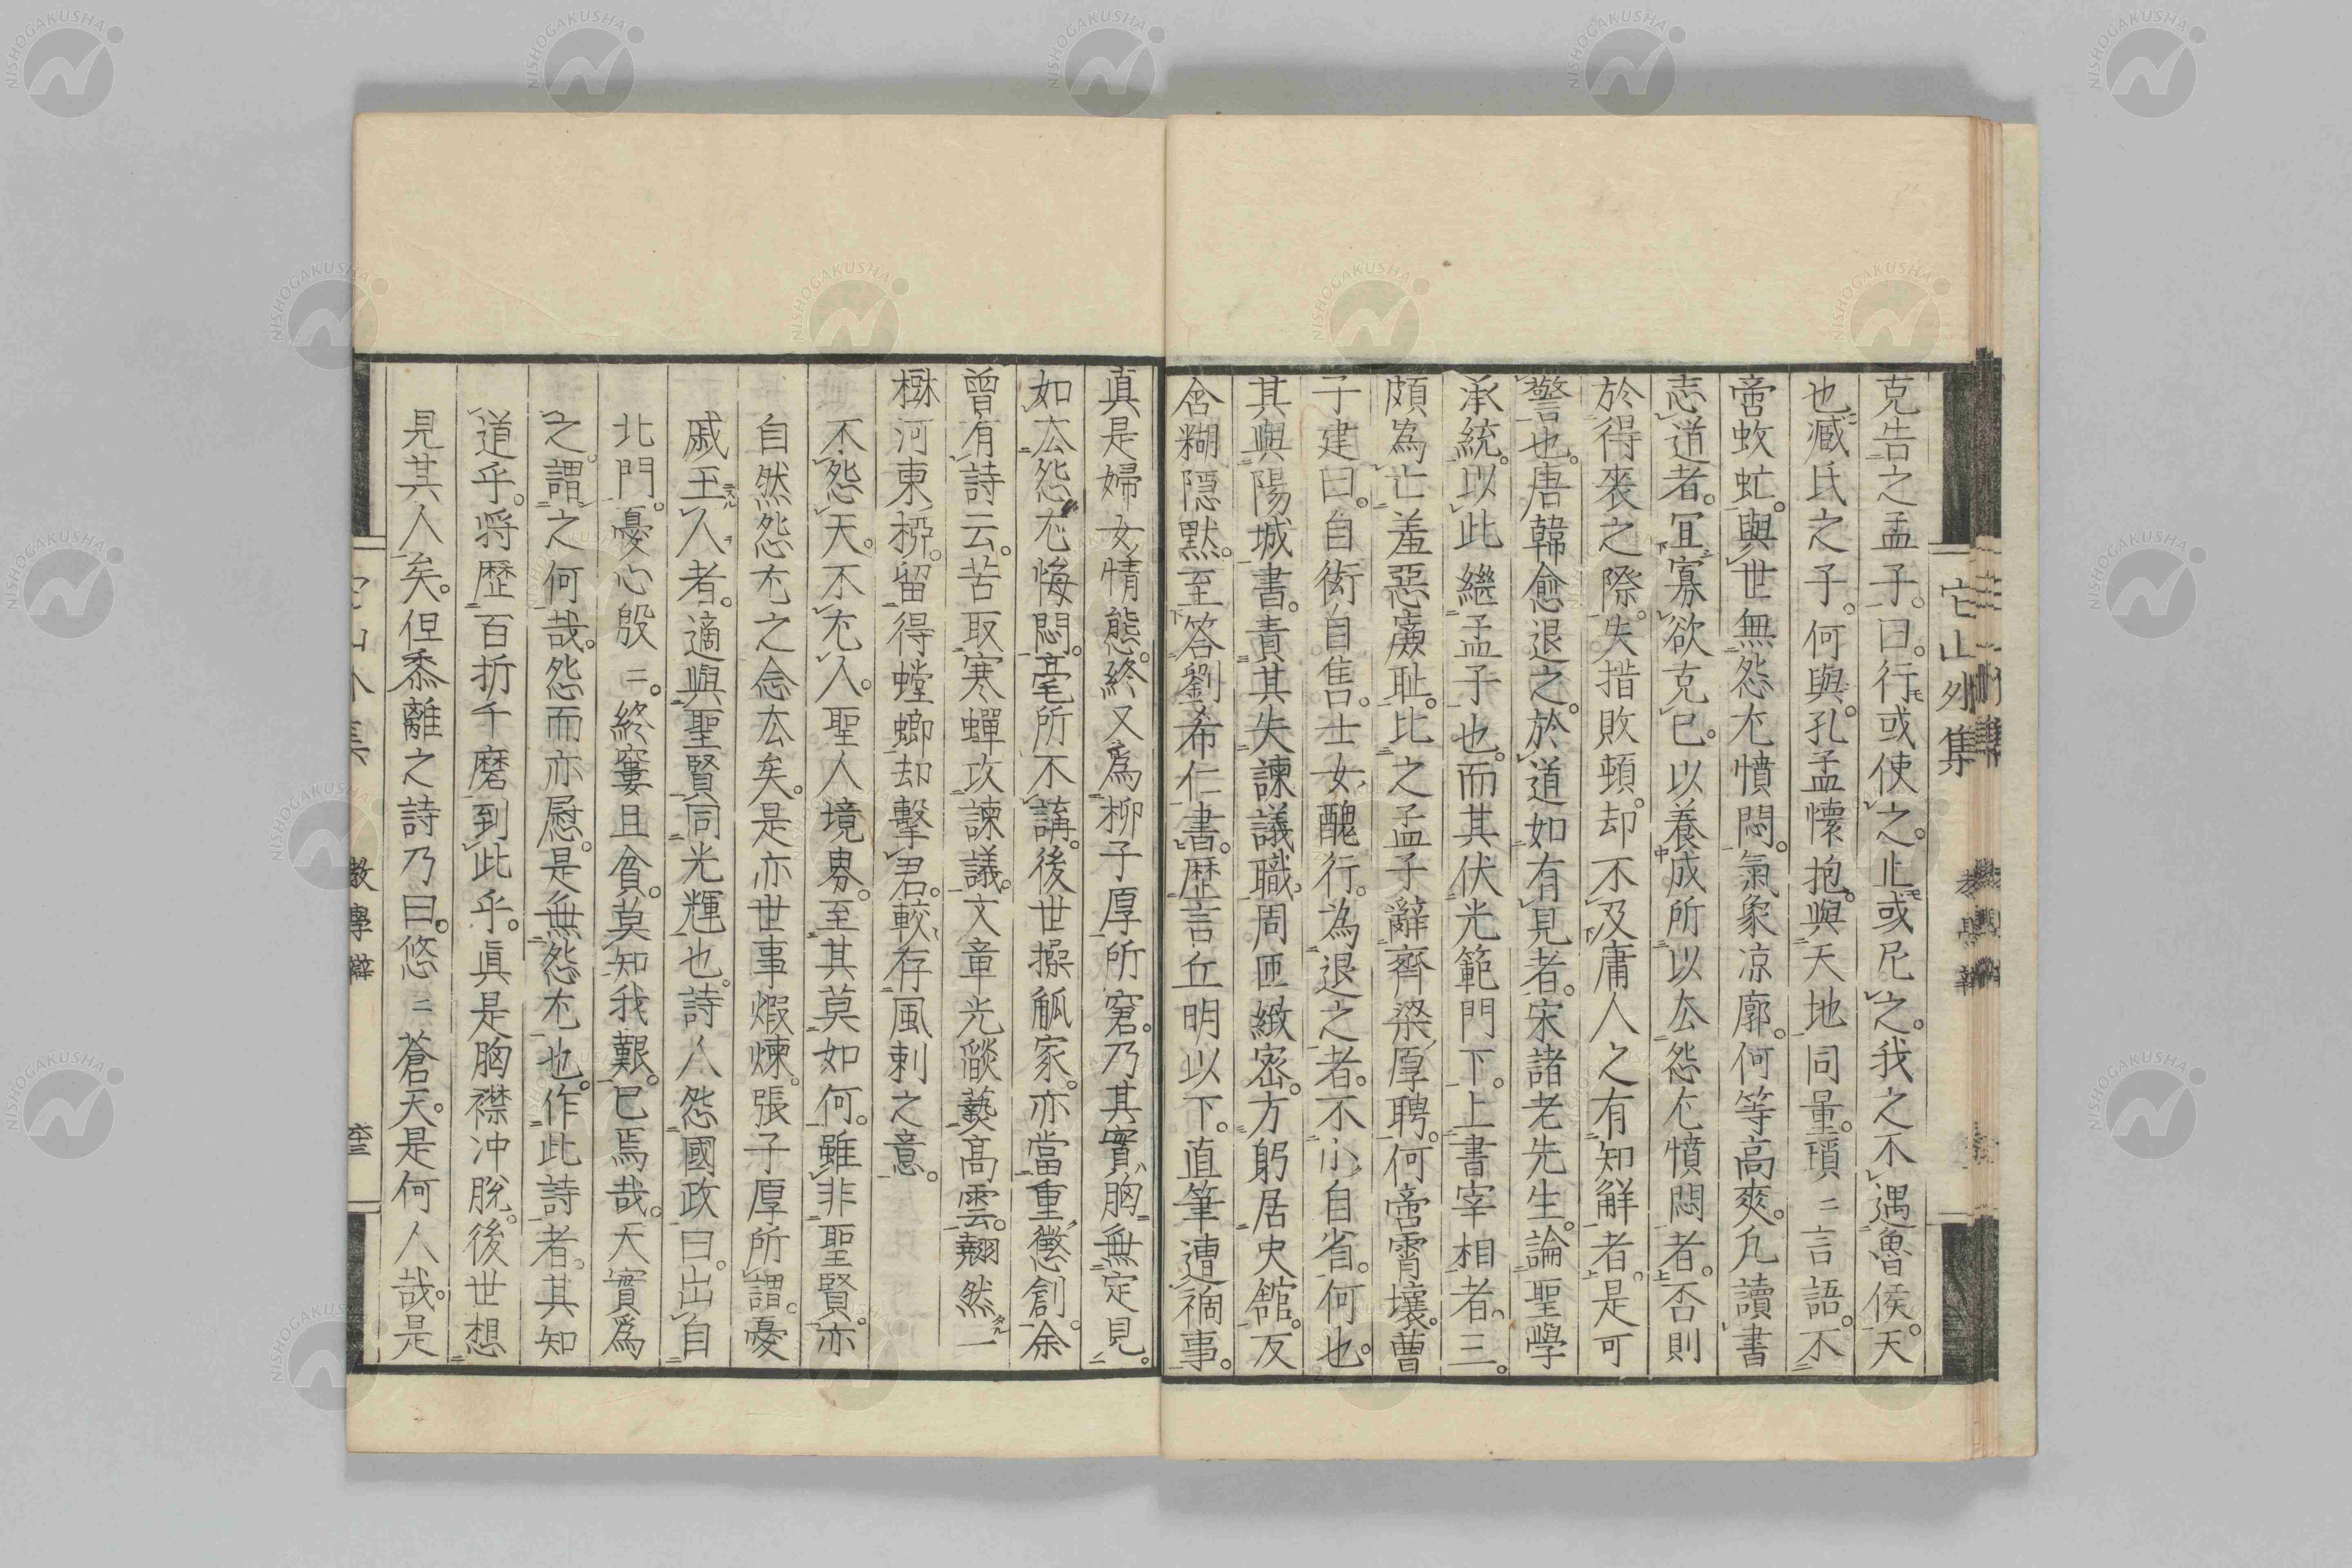 克告之孟子。曰。行或使之。止或尼之。我之不遇魯侯。天
也。臧氏之子。何與。孔孟懷抱。與天地同量。瑣〻言語。不
啻蚊虻。與世無怨尤憤悶。氣象凉廓。何等高爽。凡讀書
志道者。宜寡欲克己。以養成所以去怨尤憤悶者。否則
於得喪之際。失措敗頓。却不及庸人之有知解者。是可
警也。唐韓愈退之。於道如有見者。宋諸老先生。論聖學
承統。以此繼孟子也。而其伏光範門下。上書宰相者。三。
頗為亡羞惡廉耻。比之孟子辭齊梁厚聘。何啻霄壤。曹
子建曰。自衒自售。士女醜行。為退之者。不小自省。何也。
其與陽城書。責其失諫議職。周匝緻密。方躬居史館。反
含糊隱默。至答劉希仁書。歴言丘明以下。直筆遭禍事。
真是婦女情態。終又爲柳子厚所窘。乃其實胸無定見。
如去怨尤悔悶。毫所不講。後世操觚家。亦當重懲創。余
曾有詩云。苦取寒蟬攻諫議。文章光燄薮高雲。翹然一
樹河東椏。留得螳螂却擊君。較存風刺之意。
不怨天。不尤人。聖人境界。至其莫如何。雖非聖賢。亦
自然怨尤之念去矣。是亦世事煅煉。張子厚所謂。憂
戚玉人者。適與聖賢同光輝也。詩人怨國政曰。出自
北門。憂心殷〻。終窶且貧。莫知我艱。已焉哉。天實爲
之。謂之何哉。怨而亦慰。是無怨尤也。作此詩者。其知
道乎。將歴百折千磨到此乎。眞是胸襟冲脫。後世想
見其人矣。但黍離之詩乃曰。悠〻蒼天。是何人哉。是
宅山外集
教學辯